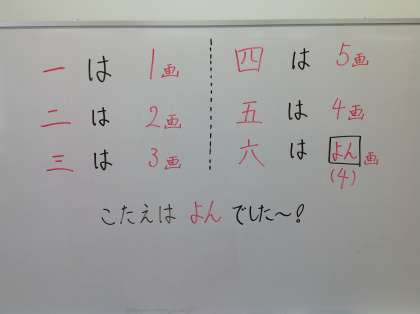 一は1画
二は2画
三は3画
四は5画
五は4画
六はよん画
(4)
こたえはよんでした〜!